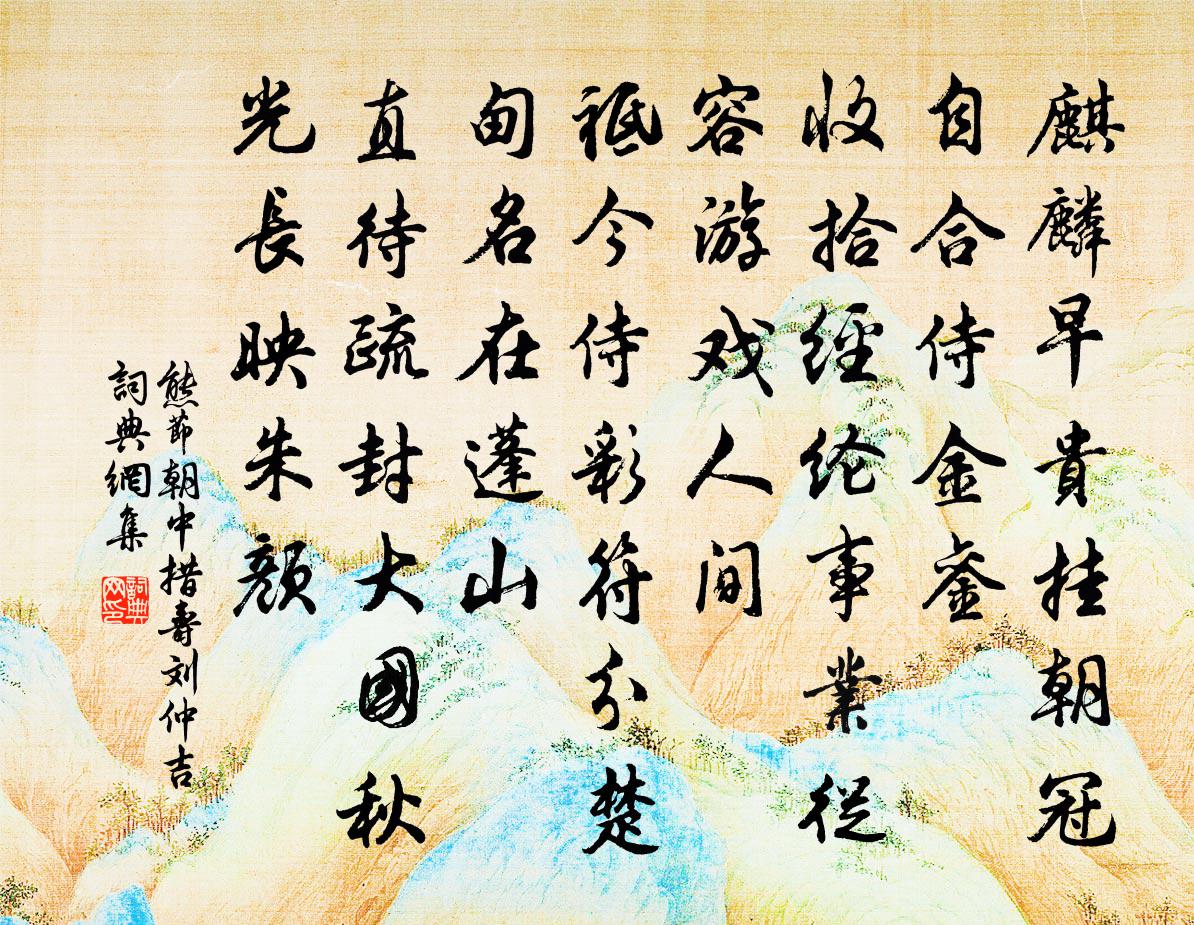 麒麟早貴挂朝冠
自合侍金銮
收拾經纶事業從
容游戏人间
祗今侍彩符分楚
甸名在蓬山
直待疏封大國秋
光長映朱顔
熊節朝中措壽刘仲吉
詞典網集
詞典网印